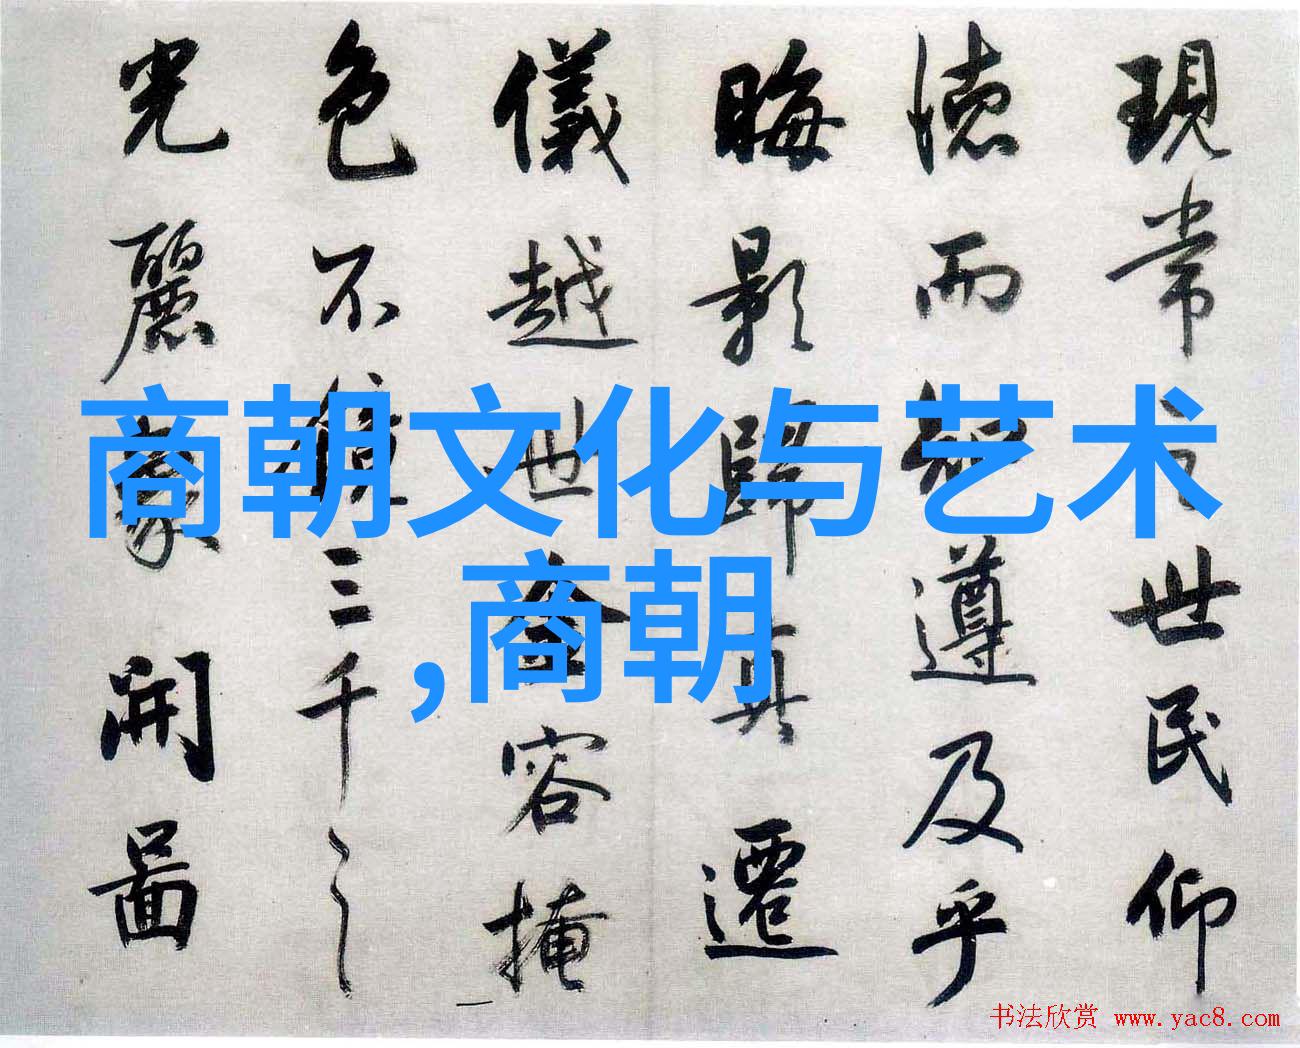 現常之世民仰
德而知遵及乎
晦影歸真遷
儀越世金容掩
色不鏡三千之
光麗象開圖
商朝文化与艺术
,商朝
书法欣赏 www.yac8.com